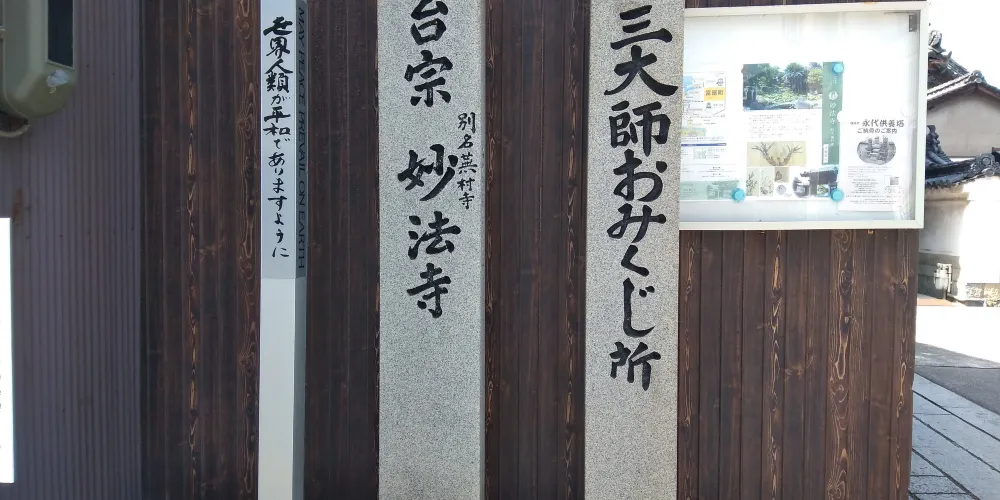 世界人類が平和でありますように
MAY PEACE PREVAIL ON EARTH
台宗 妙法寺
別名蕪村寺
三大師おみくじ所
妙法寺
永代供養塔
ご納骨のご案内